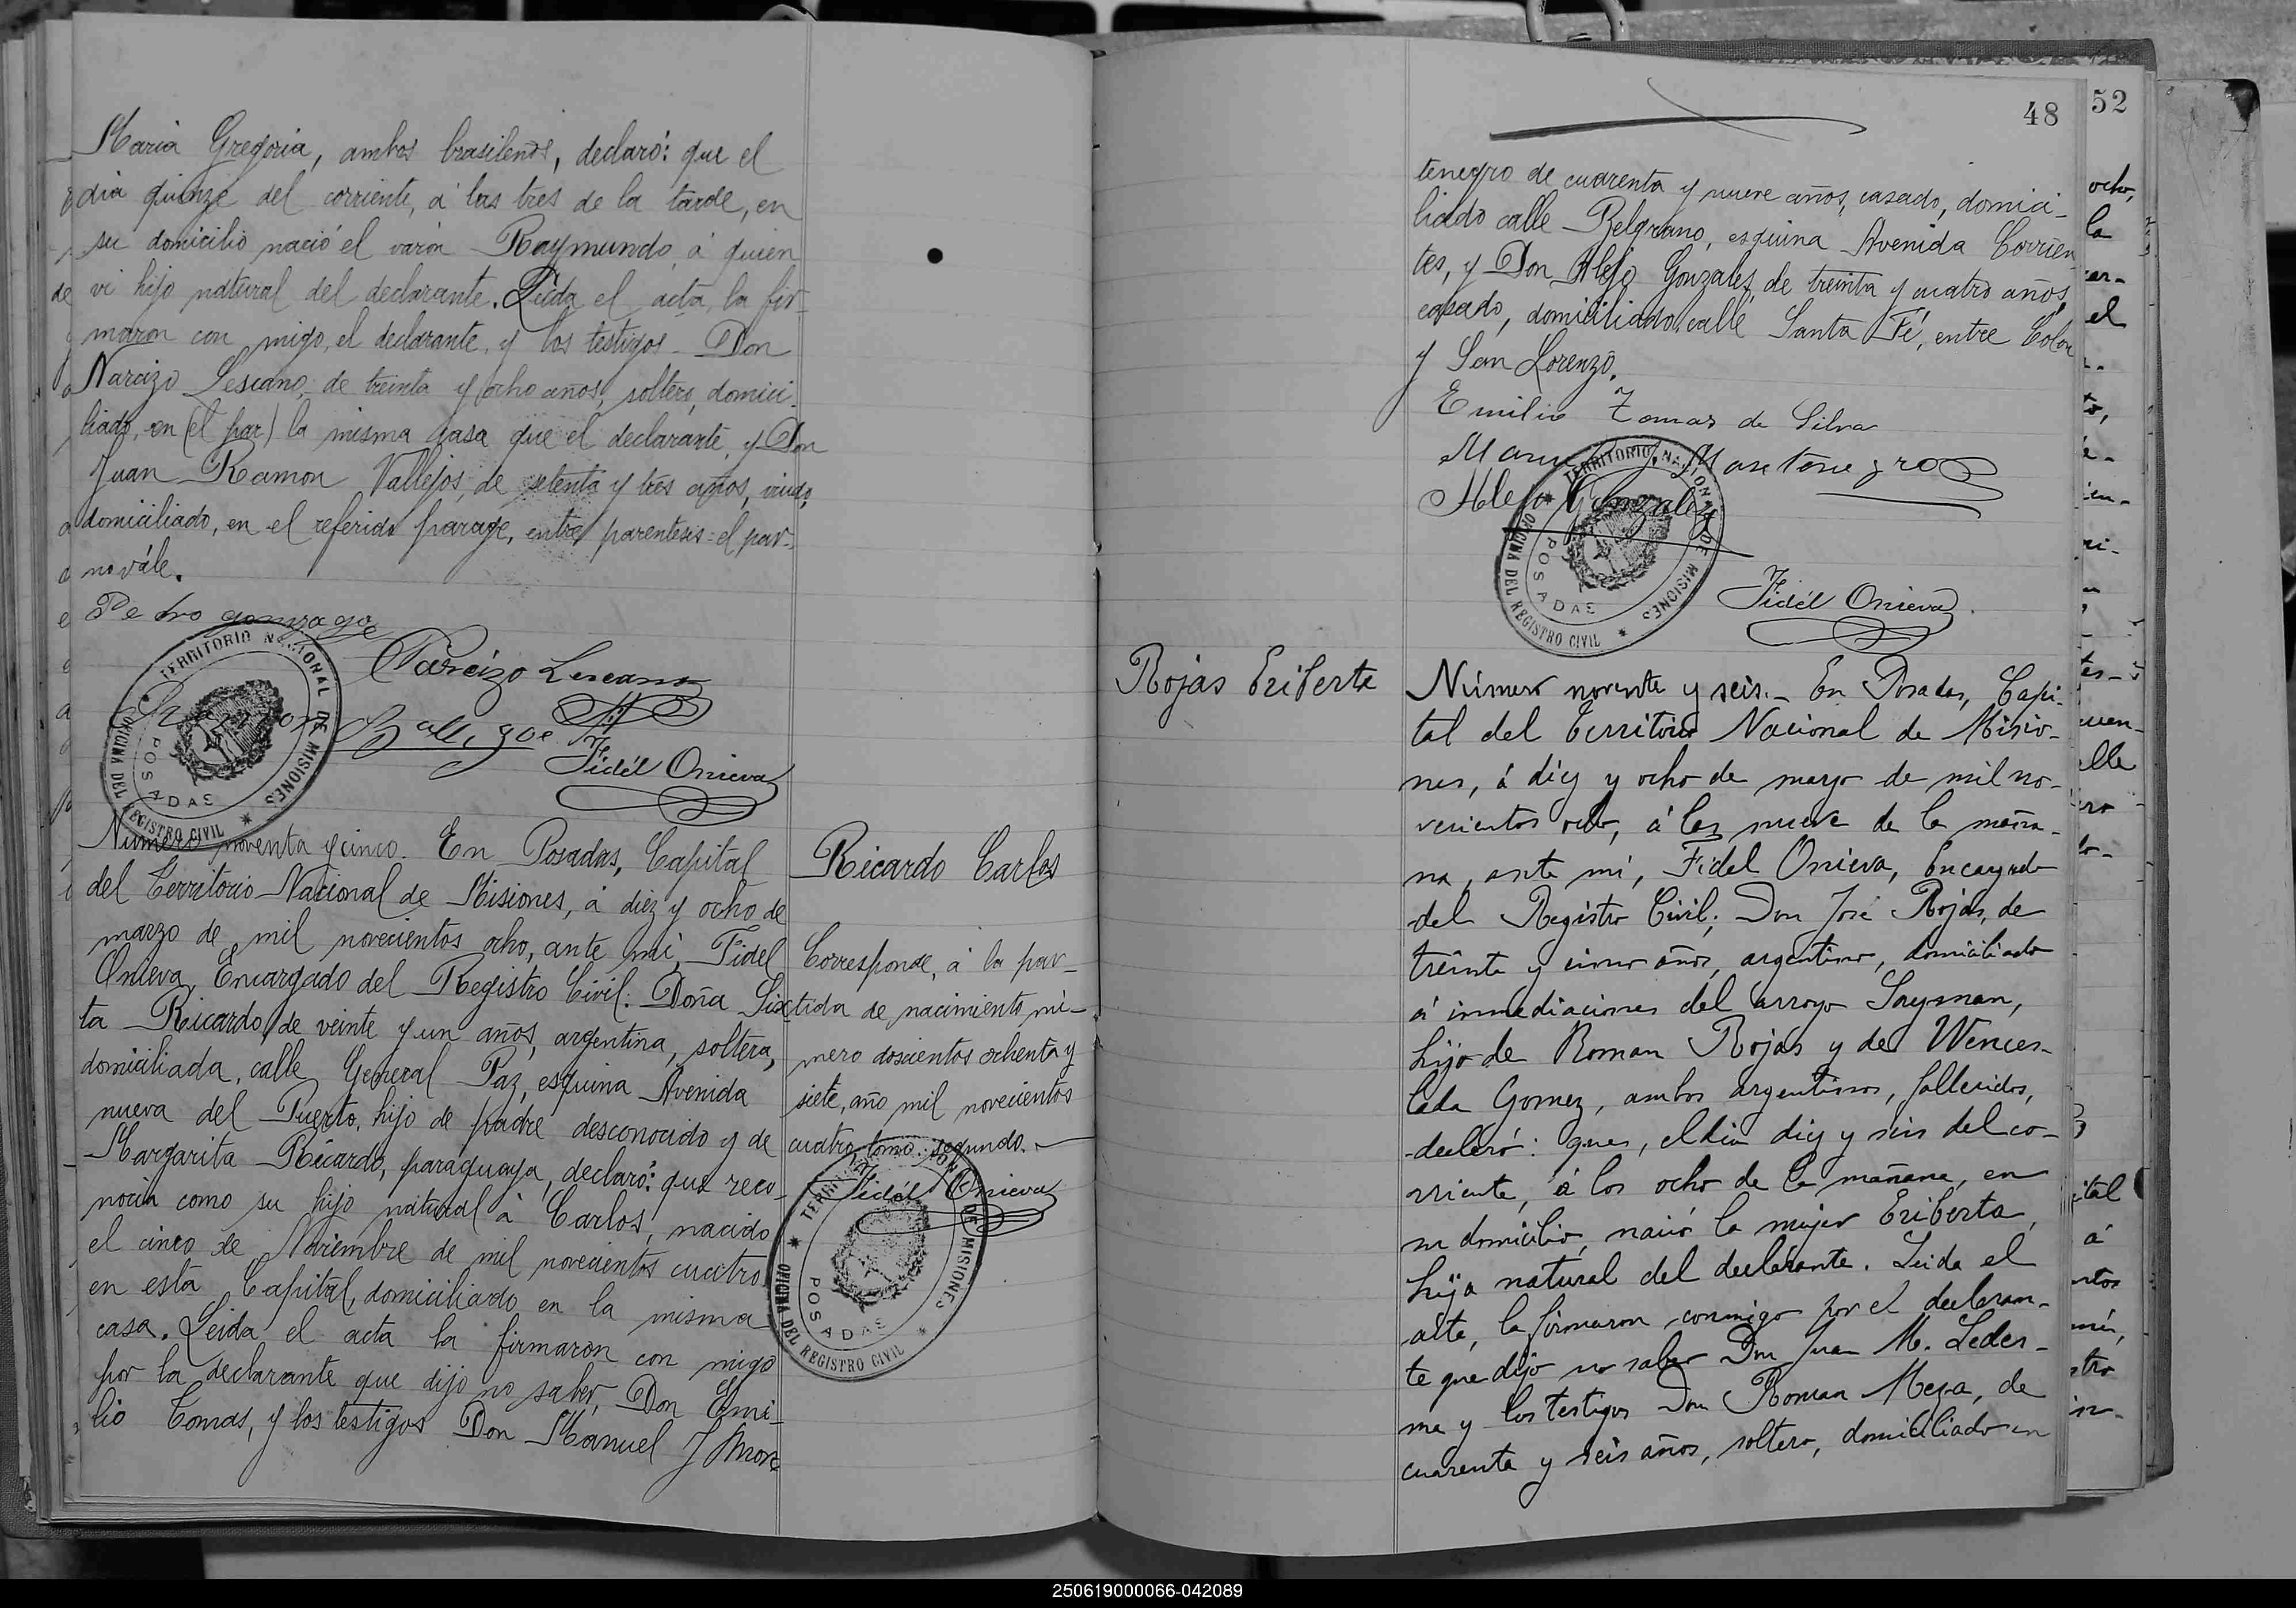 Maria Gregoria, ambos brasileños, declaró: que el
dia quinze del corriente, á las tres de la tarde, en
su domicilio nació el varón Raymundo, á quien
vi hijo natural del declarante. Leida el acta, la fir-
maron con migo, el declarante, y los testigos Don
Narcizo Lescano, de treinta y ocho años, soltero, domici-
liado, en (el par) la misma casa que el declarante, y Don
Juan Ramon Vallejos, de setenta y tres años, viudo,
domiciliado, en el referido parage, entre parentesis=el par-
no vále.
Pedro gonzaga
Narcizo Lescano
Fidél Onieva
TERRITORIO NACIONAL DE MISIONES
OFICINA DEL REGISTRO CIVIL
POSADAS
Número noventa y cinco. En Posadas, Capital
del Territorio Nacional de Misiones, á diez y ocho de
marzo de mil novecientos ocho, ante mi, Fidel
Onieva, Encargado del Registro Civil: Doña Six
ta Ricardo, de veinte y un años, argentina, soltera,
domiciliada, calle General Paz, esquina Avenida
nueva del Puerto, hijo de padre desconocido y de
Margarita Ricardo, paraguaya, declaró: que reco-
nocia como su hijo natural á Carlos, nacido
el cinco de Noviembre de mil novecientos cuatro
en esta Capital, domiciliado en la misma
casa. Leida el acta la firmaron con migo
por la declarante que dijo no saber, Don Emi-
lio Tomas, y los testigos Don Manuel J Mon
Ricardo Carlos
Corresponde, á la par-
tida de nacimiento nú-
mero doscientos ochenta y
siete, año mil novecientos
cuatro, tomo segundo.
Fidél Onieva
TERRITORIO NACIONAL DE MISIONES
OFICINA DEL REGISTRO CIVIL
POSADAS
48
tenegro de cuarenta y nueve años, casado, domici-
liado calle Belgrano, esquina Avenida Corrien
tes, y Don Alejo Gonzales, de treinta y cuatro años,
casado, domiciliado, calle Santa Fé, entre Colon
y San Lorenzo.
Emilio Tomas de Silva
Manuel J. Montenegro
Alejo Gonzalez
TERRITORIO NACIONAL DE MISIONES
OFICINA DEL REGISTRO CIVIL
POSADAS
Fidél Onieva
Rojas Eriberta
Número noventa y seis.- En Posadas, Capi-
tal del Territorio Nacional de Misio-
nes, á diez y ocho de marzo de mil no-
vecientos ocho, á las nueve de la maña-
na, ante mi, Fidel Onieva, Encargado
del Registro Civil; Don José Rojas, de
treinta y cinco años, argentino, domiciliado
á inmediaciones del arroyo Sayman,
hijo de Roman Rojas y de Wences-
lada Gomez, ambos argentinos, fallecidos,
declaró: que, el dia diez y seis del co-
rriente, á las ocho de la mañana, en
su domicilio, nació la mujer Eriberta,
hija natural del declarante. Leida el
acta, la firmaron conmigo por el declaran-
te que dijo no saber Don Juan M. Ledes-
ma y los testigos Don Roman Meza, de
cuarenta y seis años, soltero, domiciliado en
52
ocho,
la
el
elle
ital
á
mi,
250619000066-042089